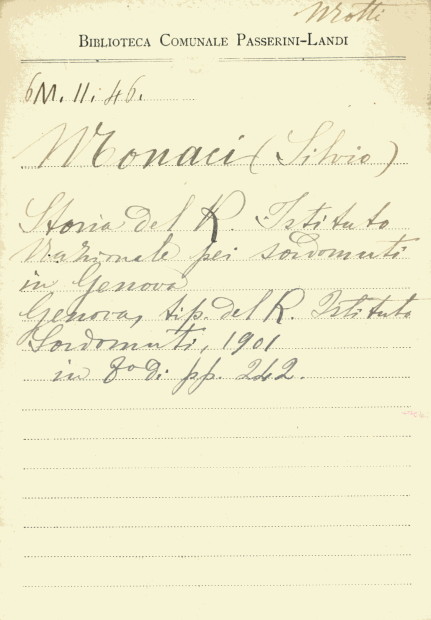 Motti
BIBLIOTECA COMUNALE PASSERINI-LANDI
6M. 11. 46.
Monaci (Silvio)
Storia del R. Istituto
Nazionale pei sordomuti
in Genova
Genova, tip. del R. Istituto
Sordomuti, 1901
in 8º di pp. 242.